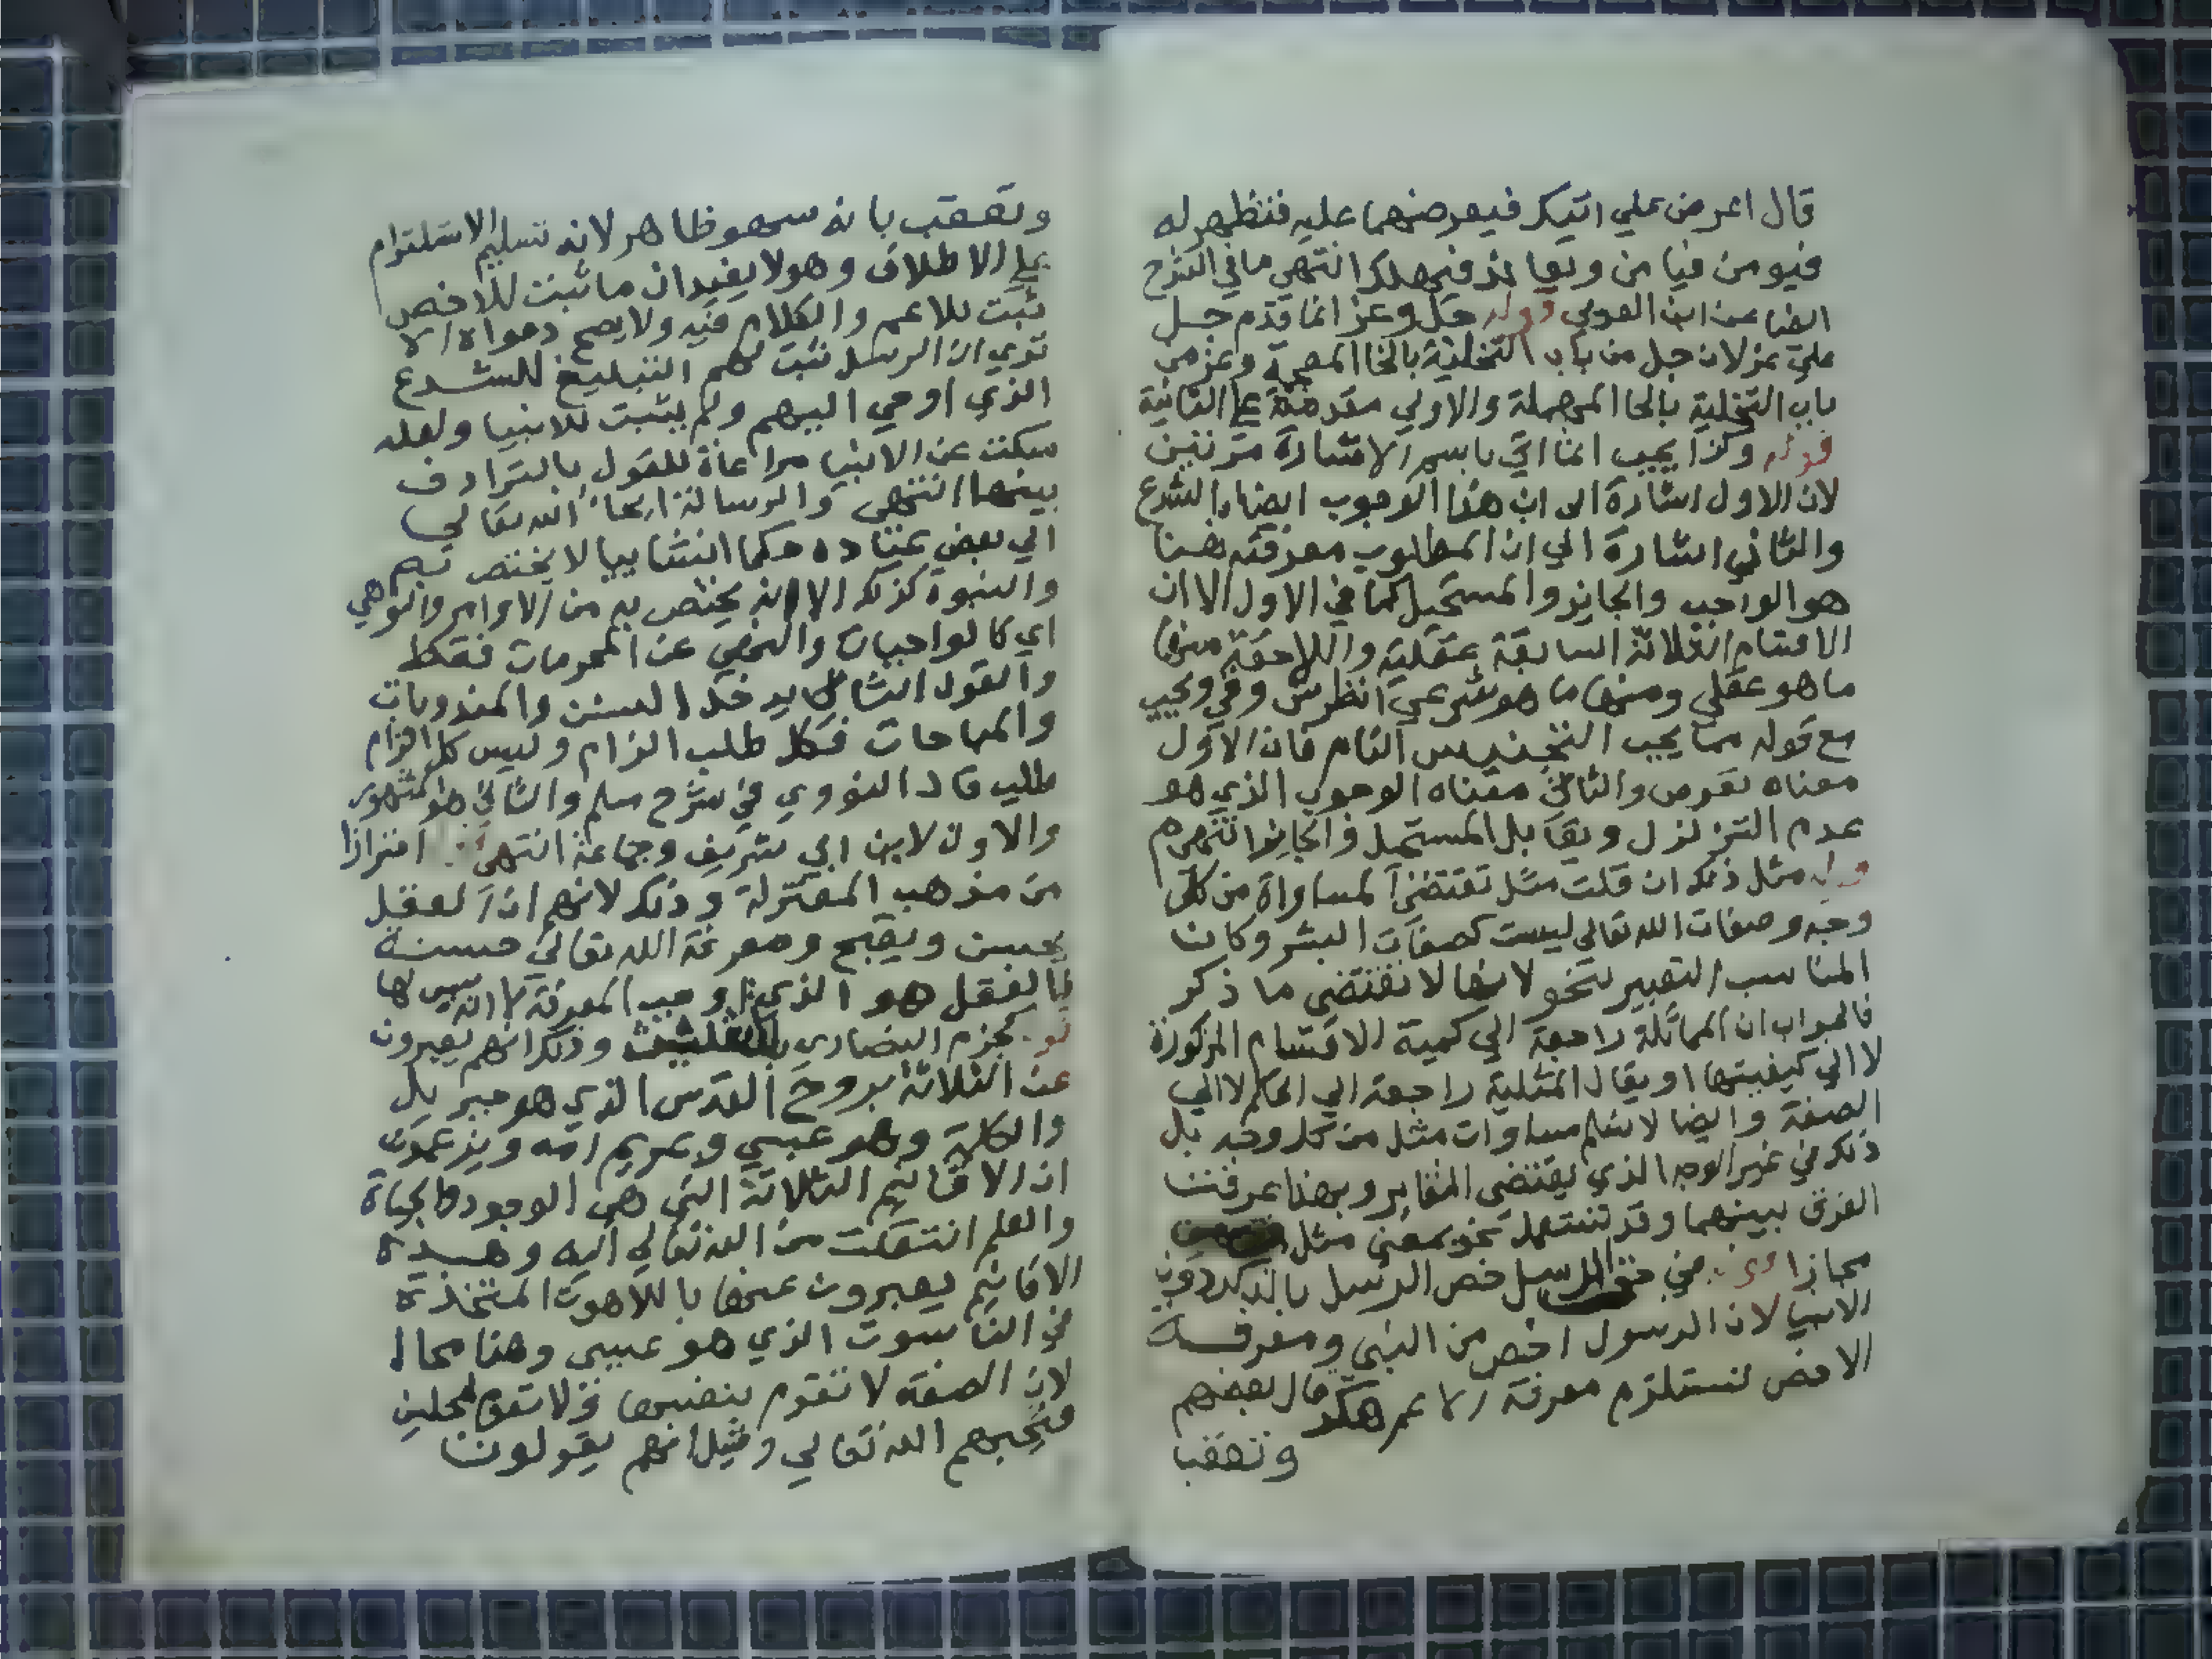 قال اعرض علي اتيكر فيعرضهما عليه فتظهر له
فيومن فيامن ويعاند فيهلك انتهي ما في الشرح
ايضا عن ابن العربي قوله جل وعز انما قدم جل
علي عز لان جل من باب التخلية بالخا المعجمة وعز من
باب التحلية بالحا المهملة والاولي مقدمة علي الثانية
قوله وكذا يجب انما اتي باسم الاشارة مرتين
لان الاول اشارة الي ان هذا الوجوب ايضا بالشرع
والثاني اشارة الي ان المطلوب معرفته هنا
هو الواجب والجايز والمستحيل كما في الاول الا ان
الاقسام الثلاثة السابقة عقلية واللاحقة منها
ما هو عقلي ومنها ما هو شرعي انظر س وفي ويجب
مع قوله مما يجب التجنيس التام فان الاول
معناه يفرض والثاني معناه الوجوب الذي هو
عدم التزلزل ويقابل المستحيل والجايز انتهي م
قوله مثل ذلك ان قلت مثل تقتضي المساواة من كل
وجه وصفات الله تعالي ليست كصفات البشر وكان
المناسب التعبير بنحو لانها لا تقتضي ما ذكر
فالجواب ان المماثلة راجعة الي كمية الاقسام المذكورة
لا الي كيفيتها او يقال المثلية راجعة الي الحكم لا الي
الصفة وايضا لا نسلم مساوات مثل من كل وجه بل
ذلك في غير الوجه الذي يقتضي التغاير وبهذا عرفت
الفرق بينهما وقد تستعمل نحو بمعني مثل
مجازا قوله في حق الرسل خص الرسل بالذكر دون
الانبيا لان الرسول اخص من النبي ومعرفة
الاخص تستلزم معرفة الاعم هكذا قال بعضهم
وتعقب
وتعقب بانه سهو ظاهر لانه تسليم الاستلزام
علي الاطلاق وهو لا يفيد ان ما ثبت للاخص
ثبت للاعم والكلام فيه ولا يصح دعواه الا
تري ان الرسل ثبت لهم التبليغ للشرع
الذي اوحي اليهم ولم يثبت للانبيا ولعله
سكت عن الانبيا مراعاة للقول بالترادف
بينهما انتهي والرسالة ايحا الله تعالي
الي بعض عباده حكما انشاييا لا يختص به
والنبوة كذلك الا انه يختص به من الاوامر والنواهي
اي كالواجبات والنهي عن المحرمات فقط
والقول الثاني يدخل السنن والمندوبات
والمباحات فكل طلب الزام وليس كل الزام
طلب قال النووي في شرح مسلم والثاني هو المشهور
والاول لابن ابي شريف وجماعة انتهي احترازا
من مذهب المعتزلة وذلك لانهم ان العقل
يحسن ويقبح ومعرفة الله تعالي حسنة
فالعقل هو الذي اوجب المعرفة لا انه سبب لها
قوله كجزم النصاري بالتثليث وذلك انهم يعبرون
عن الثلاثة بروح القدس الذي هو جبريل
والكلمة وهو عيسي ومريم امه ويزعمون
ان الاقانيم الثلاثة التي هي الوجود والحياة
والعلم انتقلت من الله تعالي اليه وهذه
الاقانيم يعبرون عنها باللاهوت المتخذة
في الناسوت الذي هو عيسي وهذا محال
لان الصفة لا تقوم بنفسها ولا تقوم بمحلين
الله تعالي وقيل انهم يقولون